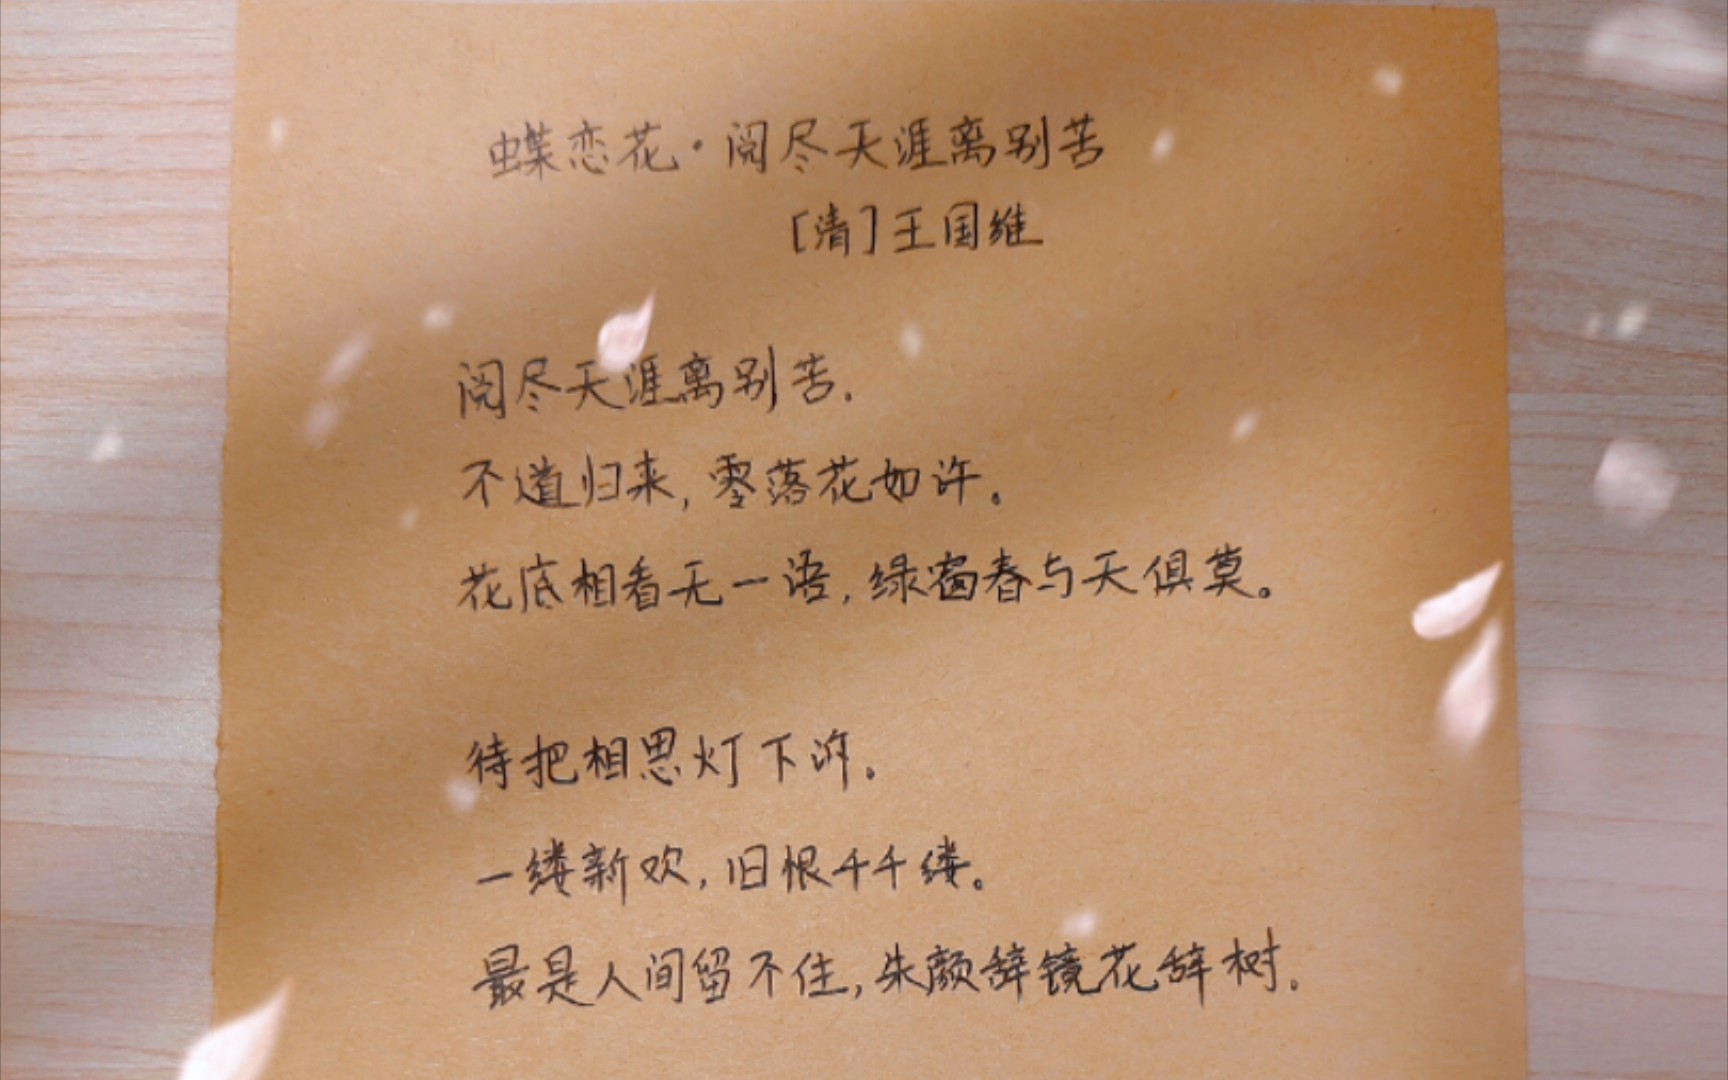 蝶恋花·阅尽天涯离别苦
[清]王国维
阅尽天涯离别苦.
不道归来,零落花如许。
花底相看无一语,绿窗春与天俱莫。
待把相思灯下诉。
一缕新欢,旧恨千千缕。
最是人间留不住,朱颜辞镜花辞树.